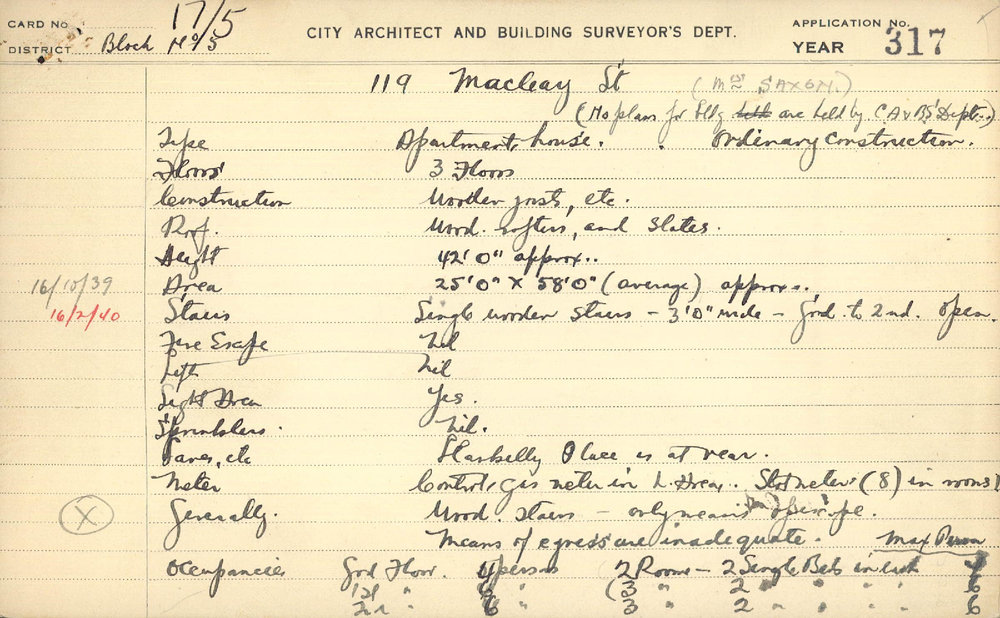 CARD No 17/5
CITY ARCHITECT AND BUILDING SURVEYOR'S DEPT.
APPLICATION No.
DISTRICT Block No 5
YEAR 317
119 Macleay St (Mrs SAXON.)
(No plans for bldg held are held by C.A & B.S' Dept.)
Type Apartment house. Ordinary construction.
Floors 3 Floors
Construction Wooden joists, etc.
Roof. Wood. rafters, and slates.
Height 42'0" approx..
16/10/39 Area 25'0" X 58'0" (average) approx..
16/2/40 Stairs Single wooden stairs – 3'0" wide – grd. to 2nd. open.
Fire Escape Nil
Lift Nil
Light Area Yes.
Sprinklers. Nil.
Lanes, etc Place is at rear.
Meter Control, gas meter in L. Area.. Slot meters (8) in rooms
X Generally. Wood. stairs – only means of escape.
Means of egress are inadequate. Max Person
Occupancies Grd Floor. 4 persons 2 Rooms – 2 Single Beds in each 4
1st " 6 " (3 " 2 " " " " 6
2nd " 6 " (3 " 2 " " " " 6